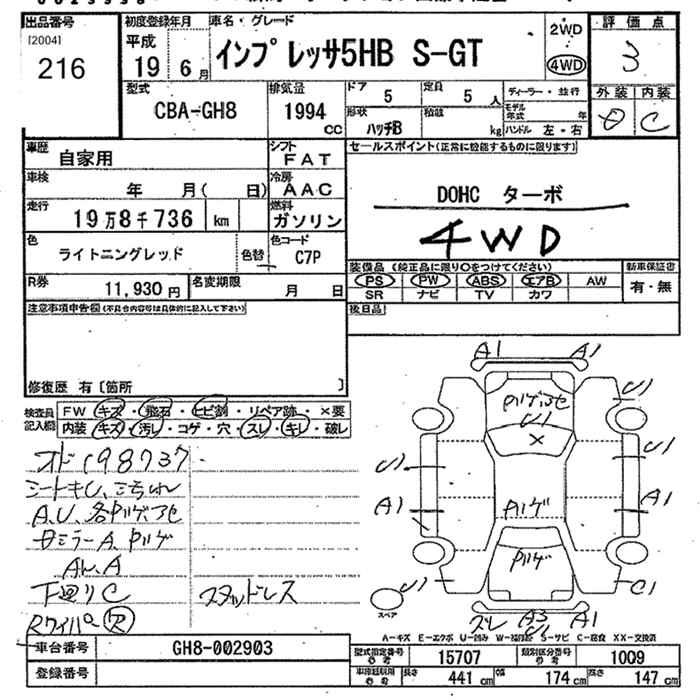 出品番号
[2004]
216
初度登録年月
平成
19 6月
車名・グレード
インプレッサ5HB S-GT
2WD
4WD
評価点
3
型式
CBA-GH8
排気量
1994
cc
ドア
5
定員
5 人
形状
ハッチB
積載
kg
ディーラー・並行
モデル年式 年
ハンドル 左・右
外装 内装
C
車歴
自家用
シフト
FAT
セールスポイント(正常に機能するものに限ります)
車検
年 月( 日)
冷房
AAC
DOHC ターボ
走行
19万8千736 km
燃料
ガソリン
4WD
色
ライトニングレッド
色替
色コード
C7P
装備品(純正品に限り○をつけてください)
新車保証書
PS PW ABS エアB AW
有・無
SR ナビ TV カワ
R券
11,930円
名変期限
月 日
後日品
注意事項申告欄(不具合内容等は具体的に記入して下さい)
修復歴 有〔箇所 〕
検査員記入欄
FW キズ・飛石・ヒビ割・リペア跡・×要
内装 キズ・汚し・コゲ・穴・スレ・キレ・破レ
オド198737
A.U.
下廻りC
Rワイパー R
スタッドレス
A1
A1
U1
U1
U1
U1
A1
A1
U1
C1
X
スレ
A3
A1
スペア
A-キズ E-エクボ U-凹み W-補修跡 S-サビ C-腐食 XX-交換済
車台番号
GH8-002903
登録番号
型式指定番号
参考
15707
類別区分番号
参考
1009
車庫証明用
参考
長さ
441 cm
幅
174 cm
高さ
147 cm